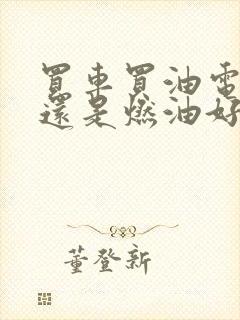 買車買油電
還是燃油好
董登新